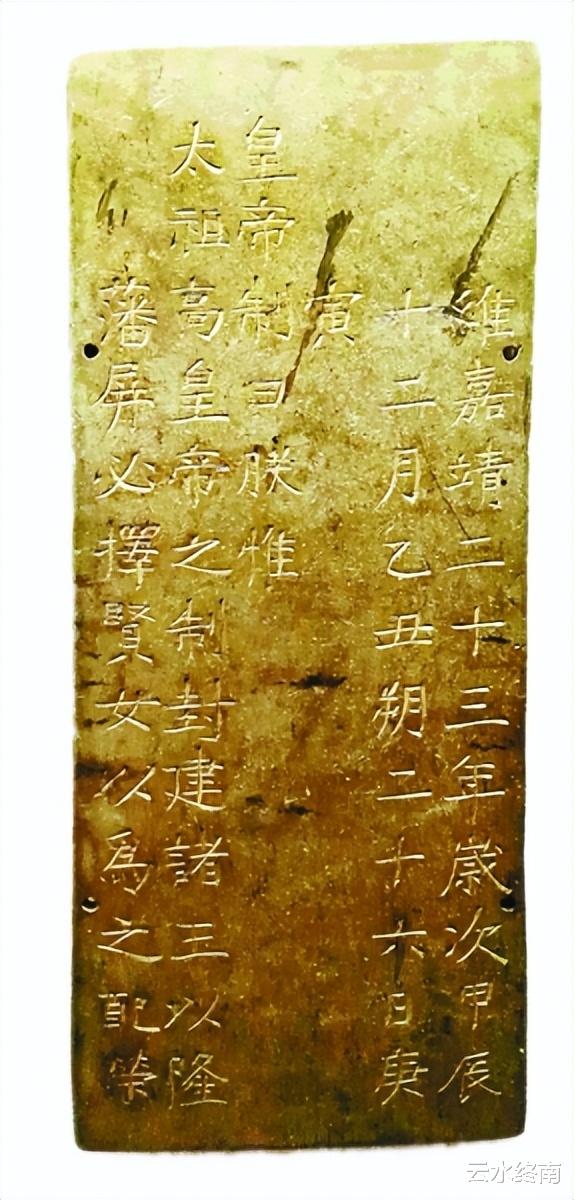 維嘉靖二十三年歲次甲辰
十二月乙丑朔二十六日庚
寅
皇帝制曰朕惟
太祖高皇帝之制封建諸王以隆
藩屏必擇賢女以爲之配榮
云水终南